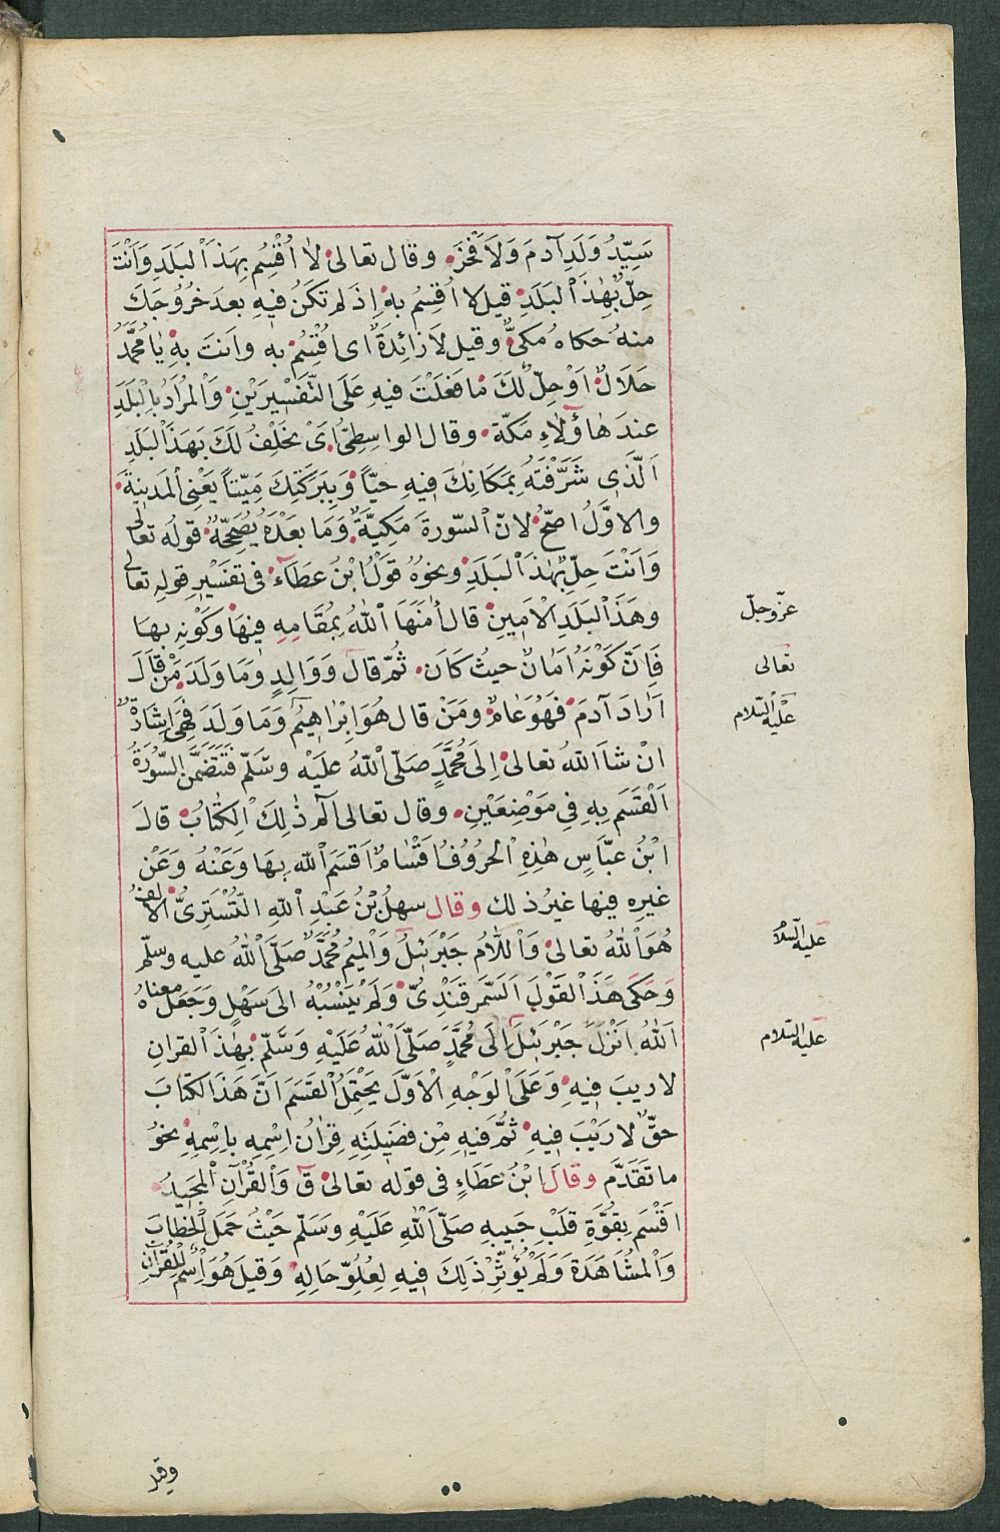 سَيِّدُ وَلَدِ آدَمَ وَلَا فَخْرَ وقال تعالى لا اُقْسِمُ بِهَذَا الْبَلَدِ وَاَنْتَ
حِلٌّ بِهٰذَا الْبَلَدِ قيل لا اُقْسِمُ به اِذ لم تكُنْ فيهِ بعدَ خُرُوجِكَ
منهُ حكاهُ مكىٌّ وقيل لا زائِدَةٌ اى اُقْسِمُ به واَنتَ بهِ يا محُمَّدُ
حَلَالٌ اَوْ حِلٌّ لَكَ مَا فَعَلْتَ فيهِ عَلَى التَّفْسِيرَيْنِ وَالْمُرَادُ بِالْبَلَدِ
عندَ هٰاؤُلٰاءِ مَكّة وقال الواسِطِىُّ اىْ يَحْلِفُ لَكَ بِهَذَا الْبَلَدِ
اَلَّذِى شَرَّفْتَهُ بِمَكَانِكَ فِيهِ حيّاً وَبِبَرَكَتِكَ مَيِّتاً يَعْنِى الْمَدِينَةَ
والاوَّلُ اصحُّ لانّ السّورةَ مَكِيَّةٌ وَمَا بعْدَهُ يُصَحِّحُهُ قولُهُ تعالى
وَاَنْتَ حِلٌّ بِهٰذَا الْبَلَدِ ونحوُهُ قَوْلُ ابْنُ عطَاء فى تفسيرِ قولِهِ تعالى
وهَذَا الْبَلَدِ الْاَمِينِ قال أمَنَهَا اللهُ بِمُقَامِهِ فِيهَا وَكَوْنِهِ بهَا
فَاِنَّ كَوْنَهُ اَمَانٌ حيثُ كَانَ ثُمَّ قال وَوَالِدٍ وَمَا وَلَدَ مَنْ قَالَ
اَرَادَ آدَمَ فَهُوَ عامٌ ومَنْ قال هُوَ اِبْرَاهِيمُ وَمَا وَلَدَ فَهِىَ اِشَارَةٌ
انْ شاَ اللهُ تعالى اِلَى مُحُمَّدٍ صَلَّى اللهُ علَيْه وسَلّم فَتَتَضَمَّنُ السُّورَةُ
اَلْقَسَمَ بِهِ فِى مَوْضِعَيْنِ وقال تعالى آلٓم ذٰلِكَ الْكِتَابُ قالَ
ابْنُ عبَّاسٍ هٰذِهِ الْحُروُفُ اَقْسَامٌ اَقْسَمَ اللهُ بهَا وَعَنْهُ وَعَنْ
غيرِهِ فيها غيرُ ذلك وقال سهلُ بْنُ عَبْدِ اللهِ التُّسْتَرِىُّ الالِفُ
هُوَ اللهُ تعالى وَاللّامُ جَبْرَئيلُ وَالْمِيمُ مُحمَّدٌ صَلَّى اللهُ عليه وسلّم
وَحَكَى هَذَا الْقَوْلَ اَلسَّمَرْقَنْدِىُّ وَلَمْ يَنْسُبْهُ الى سَهْلٍ وَجَعَلَ معناهُ
اَللهُ اَنْزَلَ جَبْرَئيلَ اِلَى مُحُمَّدٍ صَلَّى اللهُ عَلَيْهِ وَسَلَّمَ بِهٰذَا القرانِ
لا ريبَ فِيهِ وَعَلَى الْوَجْهِ الْاَوَّلِ يَحْتَمِلُ الْقَسَمَ اَنَّ هَذَا الكتَابَ
حقٌّ لا رَيْبَ فِيهِ ثُمَّ فِيهِ مِنْ فضِيلَتِهِ قِرَانُ اِسْمِهِ بِاِسْمِهِ نحوُ
ما تَقَدَّمَ وقال ابْنُ عَطَاءٍ فى قولِه تعالى ق وَالْقُرْآنِ الْمَجِيدِ
اَقْسَمَ بِقُوَّةِ قَلْبِ حَبِيبِهِ صَلَّى اللهِ عَلَيْهِ وَسَلَّم حَيْثُ حَمَلَ الْخِطَابَ
وَالْمُشَاهَدَةَ وَلَمْ يُؤَثِّرْ ذَلِكَ فِيهِ لِعُلُوِّ حَالِهِ وَقيلَ هُوَ اِسْمٌ لِلْقُرْآنِ
عزّ وجلّ
تعالى
عليه السّلام
عليه السّلام
عليه السّلام
وقد